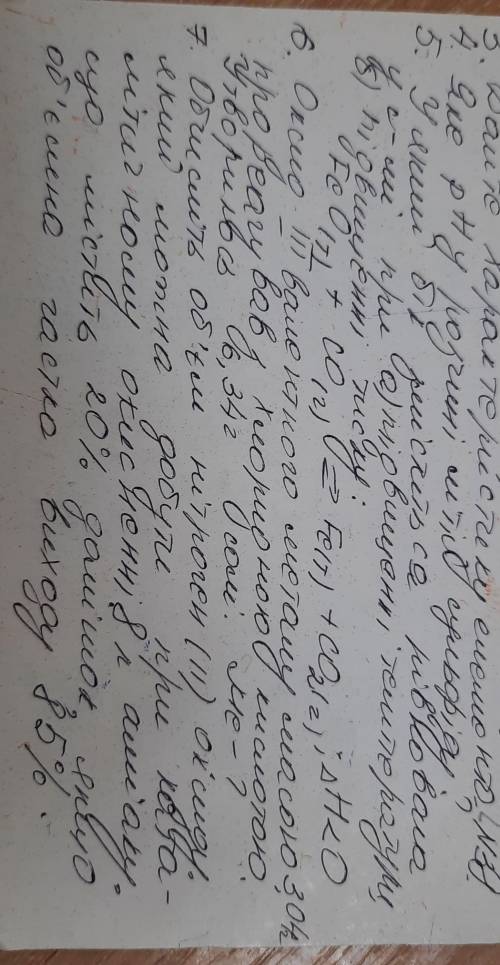 3. Дайте характеристику елемента, (N7)
4. Яке pH у розчині літій сульфіду
5. У який бік зміститься рівновага
у с-мі при а) підвищенні температури,
б) підвищенні тиску:
FeO(т) + CO(г) ⇄ Fe(т) + CO2(г); ΔH<0
6. Оксид III валентного металу масою 3,04г
прореагував з хлоридною кислотою
утворилось 6,34г солі. Ме-?
7. Обчисліть об'єм нітроген (II) оксиду
який можна добути при ката-
літичному окисненні 8 л аміаку
що містить 20% домішок якщо
об'ємна частка виходу 85%.